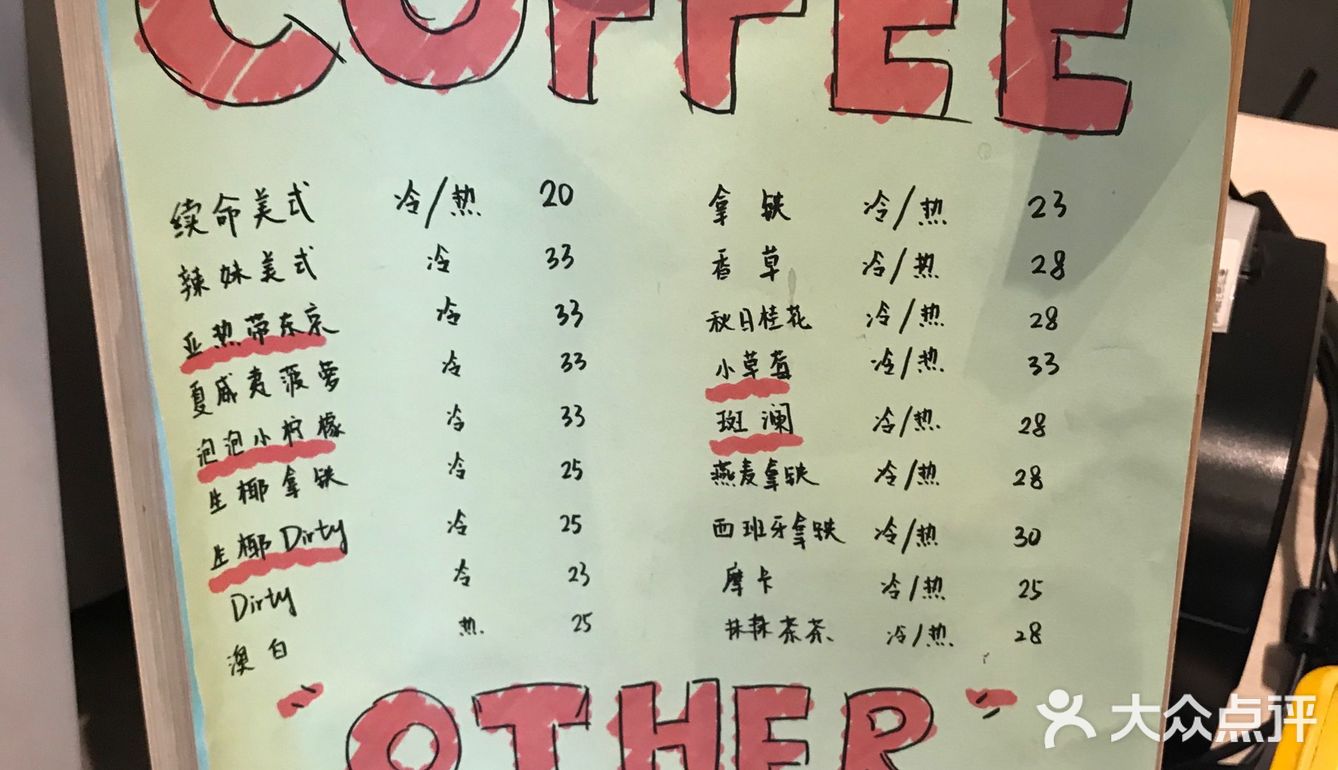 COFFEE
续命美式 冷/热 20
辣妹美式 冷 33
亚热带东京 冷 33
夏威夷菠萝 冷 33
泡泡小柠檬 冷 33
生椰拿铁 冷 25
生椰Dirty 冷 25
Dirty 冷 23
澳白 热 25
拿铁 冷/热 23
香草 冷/热 28
秋日桂花 冷/热 28
小草莓 冷/热 33
斑澜 冷/热 28
燕麦拿铁 冷/热 28
西班牙拿铁 冷/热 30
摩卡 冷/热 25
抹抹茶茶 冷/热 28
"OTHER"
大众点评